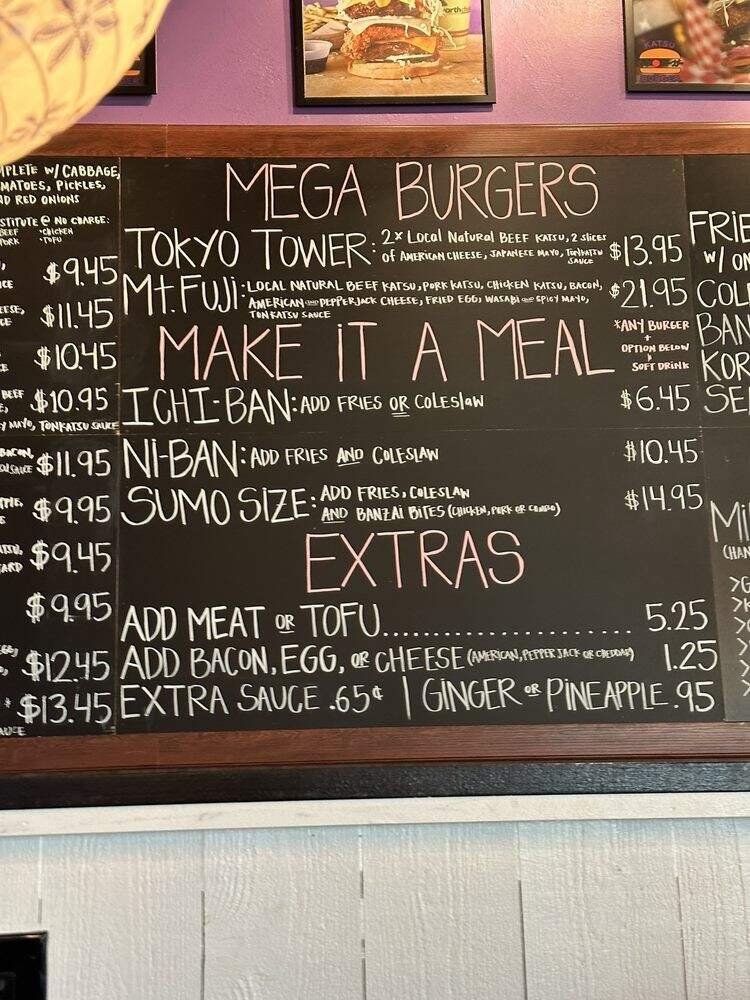 KATSU
BURGER
PLETE W/ CABBAGE,
MATOES, PICKLES,
ND RED ONIONS
STITUTE @ NO CHARGE:
BEEF • CHICKEN
PORK • TOFU
$9.45
$11.45
$10.45
BEEF $10.95
Y MAYO, TONKATSU SAUCE
BACON, $11.95
$9.95
$9.45
$9.95
$12.45
* $13.45
MEGA BURGERS
TOKYO TOWER: 2x LOCAL NATURAL BEEF KATSU, 2 SLICES
OF AMERICAN CHEESE, JAPANESE MAYO, TONKATSU
SAUCE $13.95
Mt. FUJI: LOCAL NATURAL BEEF KATSU, PORK KATSU, CHICKEN KATSU, BACON,
AMERICAN AND PEPPERJACK CHEESE, FRIED EGG, WASABI AND SPICY MAYO,
TONKATSU SAUCE $21.95
MAKE iT A MEAL
*ANY BURGER
+
OPTION BELOW
+
SOFT DRINK
ICHI-BAN: ADD FRIES OR COLESLAW $6.45
NI-BAN: ADD FRIES AND COLESLAW $10.45
SUMO SIZE: ADD FRIES, COLESLAW
AND BANZAI BITES (CHICKEN, PORK OR COMBO) $14.95
EXTRAS
ADD MEAT OR TOFU........................ 5.25
ADD BACON, EGG, OR CHEESE (AMERICAN, PEPPER JACK OR CHEDDAR) 1.25
EXTRA SAUCE .65¢ | GINGER OR PINEAPPLE .95
FRIE
W/ ON
COL
BAN
KOR
SE
Mi
(CHAN